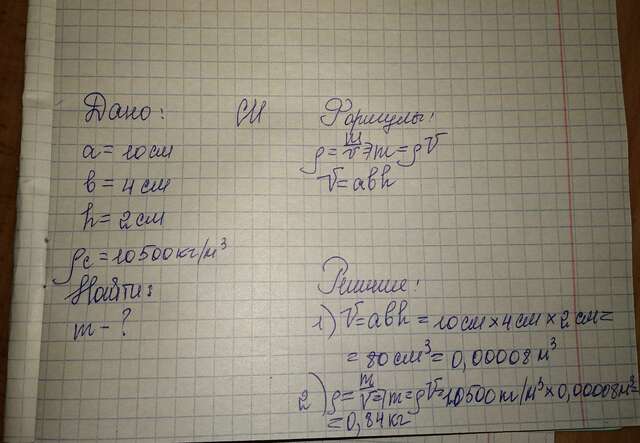 Дано:
a = 10 см
в = 4 см
h = 2 см
ρс = 10500 кг/м³
Найти:
m - ?
СИ
Формулы:
ρ = m/V ⇒ m = ρV
V = abh
Решение:
1) V = abh = 10 см × 4 см × 2 см =
= 80 см³ = 0,00008 м³
2) ρ = m/V ⇒ m = ρV = 10500 кг/м³ × 0,00008 м³ =
= 0,84 кг